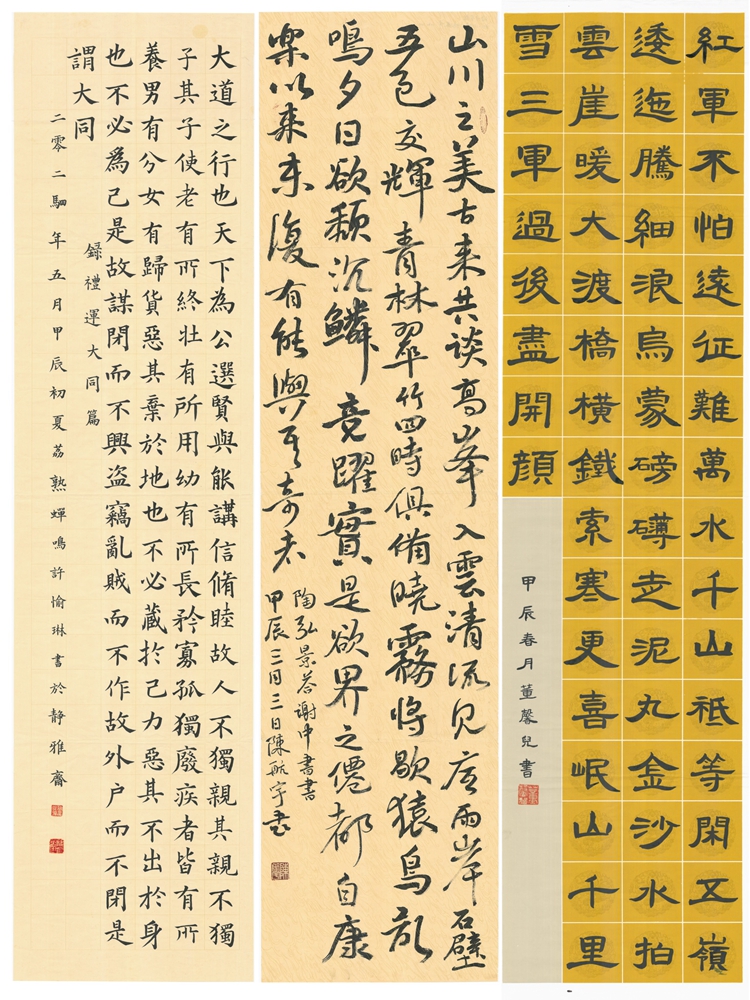 大道之行也天下為公選賢與能講信脩睦故人不獨親其親不獨
子其子使老有所終壯有所用幼有所長矜寡孤獨廢疾者皆有所
養男有分女有歸貨惡其棄於地也不必藏於己力惡其不出於身
也不必為己是故謀閉而不興盜竊亂賊而不作故外户而不閉是
謂大同
録禮運大同篇
二零二駟年五月甲辰初夏荔熟蟬鳴許愉琳書於靜雅齋
山川之美古来共談高峰入雲清流見底兩岸石壁
五色交輝青林翠竹四時俱備曉霧將歇猿鳥亂
鳴夕日欲頹沉鱗競躍實是欲界之僊都自康
樂以来未復有能與其奇者
陶弘景答謝中書書
甲辰三月三日陳航宇書
紅軍不怕遠征難萬水千山祗等閑五嶺
逶迤騰細浪烏蒙磅礴走泥丸金沙水拍
雲崖暖大渡橋橫鐵索寒更喜岷山千里
雪三軍過後盡開顔
甲辰春月董馨兒書